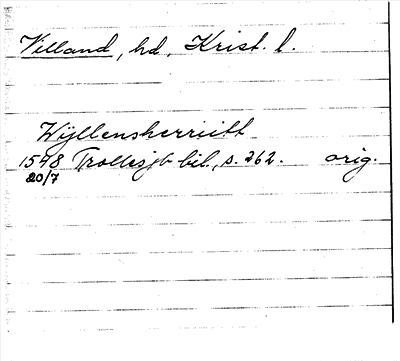 Villand, hd, Krist. l.
Wijllensherriitt
1548 Trollesjö bil., s. 262. orig.
20/7